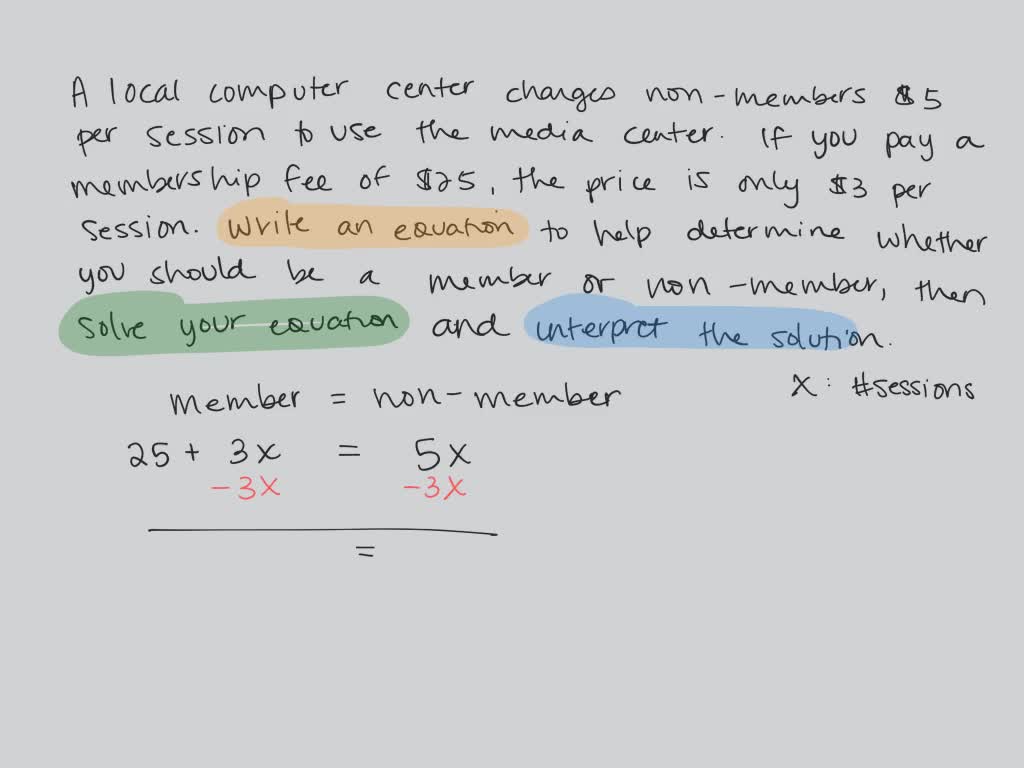 A local computer center changes non-members $5
per session to use the media center. If you pay a
membership fee of $25, the price is only $3 per
session. Write an equation to help determine whether
you should be a member or non-member, then
solve your equation and interpret the solution.
x: #sessions
member = non-member
25 + 3x = 5x
-3x -3x
=